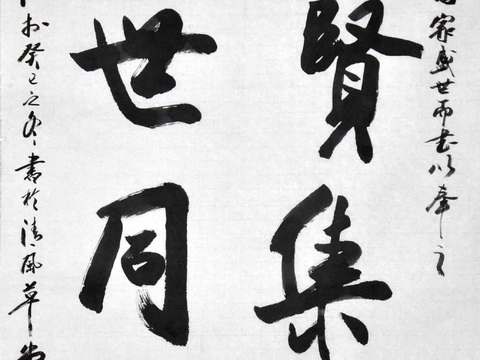 家盛世而書以奉之
賢集
世同
癸巳之冬書於清風草堂